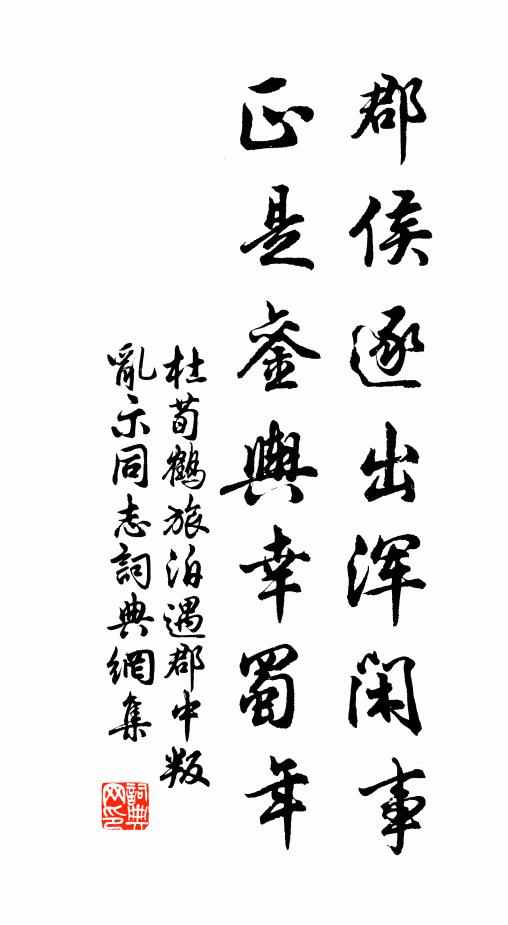 郡侯逐出浑闲事
正是銮輿幸蜀年
杜荀鶴旅泊遇郡中叛
亂示同志詞典網集
詞典网印